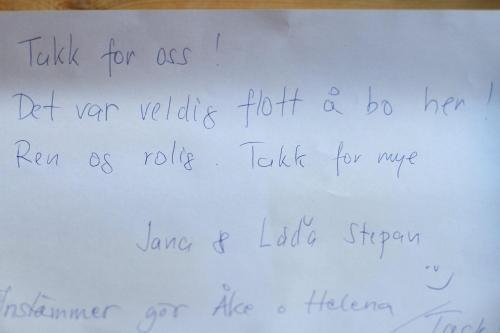 Takk for oss!
Det var veldig flott å bo her!
Ren og rolig. Takk for mye
Jana & Láďa Stepan
Instämmer gör Åke o Helena
Tack